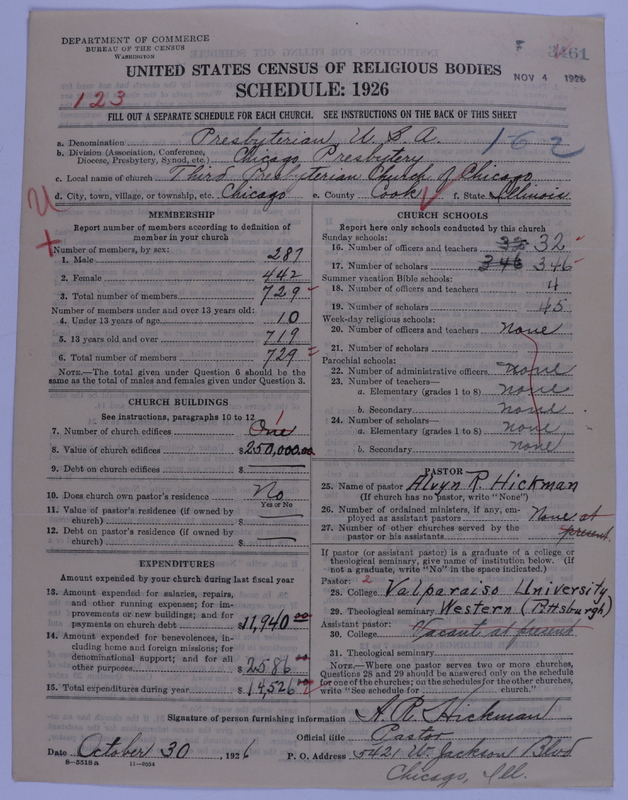 DEPARTMENT OF COMMERCE
BUREAU OF THE CENSUS
WASHINGTON
3461
NOV 4 1926
UNITED STATES CENSUS OF RELIGIOUS BODIES
SCHEDULE: 1926
123
FILL OUT A SEPARATE SCHEDULE FOR EACH CHURCH. SEE INSTRUCTIONS ON THE BACK OF THIS SHEET
162
a. Denomination Presbyterian U. S. A.
b. Division (Association, Conference, Diocese, Presbytery, Synod, etc.) Chicago Presbytery
c. Local name of church Third Presbyterian Church of Chicago
d. City, town, village, or township, etc. Chicago e. County Cook f. State Illinois
MEMBERSHIP
Report number of members according to definition of
member in your church
Number of members, by sex:
1. Male 287
2. Female 442
3. Total number of members 729
Number of members under and over 13 years old:
4. Under 13 years of age 10
5. 13 years old and over 719
6. Total number of members 729
NOTE.—The total given under Question 6 should be the
same as the total of males and females given under Question 3.
CHURCH BUILDINGS
See instructions, paragraphs 10 to 12
7. Number of church edifices One 1
8. Value of church edifices $250,000.00
9. Debt on church edifices $
10. Does church own pastor's residence No
Yes or No
11. Value of pastor's residence (if owned by
church) $
12. Debt on pastor's residence (if owned by
church) $
EXPENDITURES
Amount expended by your church during last fiscal year
13. Amount expended for salaries, repairs,
and other running expenses; for im-
provements or new buildings; and for
payments on church debt $11,940 00
14. Amount expended for benevolences, in-
cluding home and foreign missions; for
denominational support; and for all
other purposes $2586 00
15. Total expenditures during year $14,526 00
CHURCH SCHOOLS
Report here only schools conducted by this church
Sunday schools:
16. Number of officers and teachers 32
17. Number of scholars 346 346
Summer vacation Bible schools:
18. Number of officers and teachers 4
19. Number of scholars 45
Week-day religious schools:
20. Number of officers and teachers none
21. Number of scholars
Parochial schools:
22. Number of administrative officers none
23. Number of teachers—
a. Elementary (grades 1 to 8) none
b. Secondary none
24. Number of scholars—
a. Elementary (grades 1 to 8) none
b. Secondary none
PASTOR
25. Name of pastor Alvyn R. Hickman
(If church has no pastor, write "None")
26. Number of ordained ministers, if any, em-
ployed as assistant pastors None at
27. Number of other churches served by the
pastor or his assistants present
If pastor (or assistant pastor) is a graduate of a college or
theological seminary, give name of institution below. (If
not a graduate, write "No" in the space indicated.)
Pastor: 2
28. College Valparaiso University
29. Theological seminary Western (Pittsburgh)
Assistant pastor:
30. College Vacant at present
31. Theological seminary
NOTE.—Where one pastor serves two or more churches,
Questions 28 and 29 should be answered only on the schedule
for one of the churches; on the schedules for the other churches,
write "See schedule for church."
Signature of person furnishing information A. R. Hickman
Official title Pastor
Date October 30, 1926 P. O. Address 5421 W. Jackson Blvd
Chicago, Ill.
8—5518a 11—9054